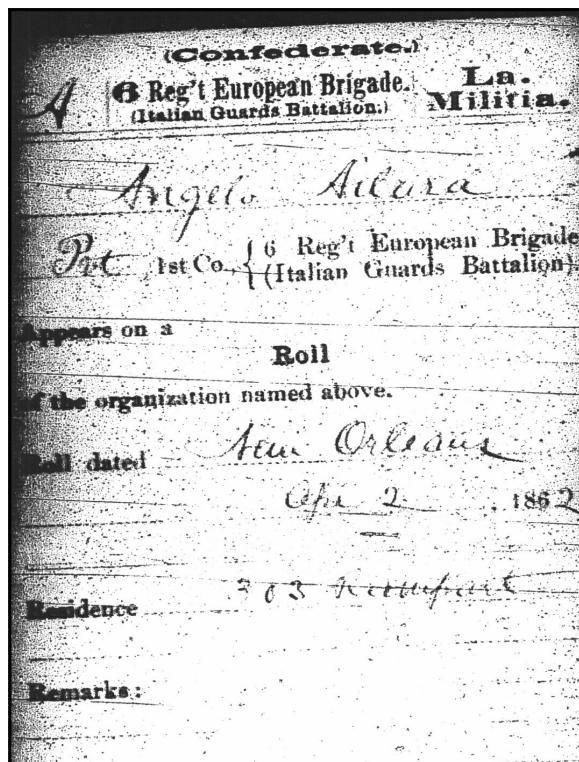 (Confederate.)
A 6 Reg't European Brigade. La.
(Italian Guards Battalion.) Militia.
Angelo Ailara
Pvt, 1st Co., { 6 Reg't European Brigade
(Italian Guards Battalion).
Appears on a
Roll
of the organization named above.
Roll dated New Orleans
Apr 2, 1862
Residence 303 Rampart
Remarks: